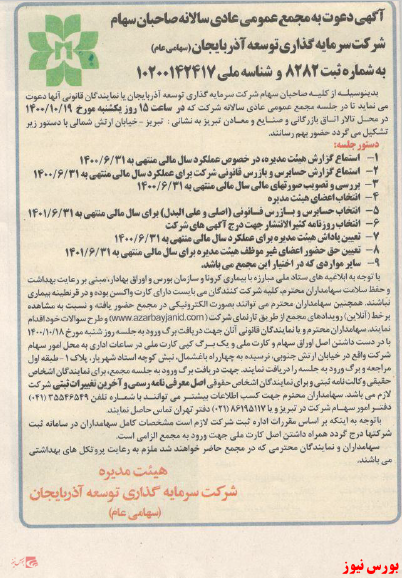 آگهی دعوت به مجمع عمومی عادی سالانه صاحبان سهام
شرکت سرمایه گذاری توسعه آذربایجان (سهامی عام)
به شماره ثبت ۸۲۸۲ و شناسه ملی ۱۰۲۰۰۱۴۲۴۱۷
بدینوسیله از کلیه صاحبان سهام شرکت سرمایه گذاری توسعه آذربایجان یا نمایندگان قانونی آنها دعوت
می نماید تا در جلسه مجمع عمومی عادی سالانه شرکت که در ساعت ۱۵ روز یکشنبه مورخ ۱۴۰۰/۱۰/۱۹
در محل تالار اتاق بازرگانی و صنایع و معادن تبریز به نشانی : تبریز - خیابان ارتش شمالی با دستور زیر
تشکیل می گردد حضور بهم رسانند.
دستور جلسه:
۱- استماع گزارش هیئت مدیره، در خصوص عملکرد سال مالی منتهی به ۱۴۰۰/۶/۳۱
۲- استماع گزارش حسابرس و بازرس قانونی شرکت برای سال مالی منتهی به ۱۴۰۰/۶/۳۱
۳- بررسی و تصویب صورتهای مالی سال مالی منتهی به ۱۴۰۰/۶/۳۱
۴- انتخاب اعضای هیئت مدیره
۵- انتخاب حسابرس و بازرس قانونی (اصلی و علی البدل) برای سال مالی منتهی به ۱۴۰۱/۶/۳۱
۶- انتخاب روزنامه کثیرالانتشار جهت درج آگهی های شرکت
۷- تعیین پاداش هیئت مدیره برای عملکرد سال مالی منتهی به ۱۴۰۰/۶/۳۱
۸- تعیین حق حضور اعضای غیر موظف هیئت مدیره برای سال مالی منتهی به ۱۴۰۱/۶/۳۱
۹- سایر مواردی که در اختیار این مجمع می باشد.
با توجه به ابلاغیه های ستاد ملی مبارزه با بیماری کرونا و سازمان بورس و اوراق بهادار، مبنی بر رعایت بهداشت
و حفظ سلامت سهامداران محترم، کلیه شرکت کنندگان می بایست دارای کارت واکسن بوده و در قرنطینه بیماری
نباشند. همچنین سهامداران محترم می توانند بصورت الکترونیکی در مجمع حضور یافته و نسبت به مشاهده
برخط (آنلاین) رویدادهای مجمع از طریق تارنمای شرکت (www.azarbayjanid.com) و طرح سوالات خود اقدام
نمایند. سهامداران محترم و یا نمایندگان قانونی آنان جهت دریافت برگ ورود به جلسه روز شنبه مورخ ۱۴۰۰/۱۰/۱۸
با در دست داشتن اصل اوراق سهام و کارت ملی و یک برگ کپی کارت ملی در ساعات اداری به محل امور سهام
شرکت واقع در خیابان ارتش جنوبی، نرسیده به چهارراه باغشمال، نبش کوچه استاد شهریار، پلاک ۱- طبقه اول
مراجعه و برگ ورود به جلسه را دریافت نمایند. جهت دریافت برگ ورود به جلسه مجمع، برای نمایندگان اشخاص
حقیقی وکالت نامه ثبتی و برای نمایندگان اشخاص حقوقی اصل معرفی نامه رسمی و آخرین تغییرات ثبتی شرکت
لازم می باشد. سهامداران محترم جهت کسب اطلاعات بیشتر می توانند با شماره تلفن ۳۵۵۴۶۵۴۹ (۰۴۱)
دفتر امور سهام شرکت در تبریز و یا ۸۶۱۹۵۱۱۷ (۰۲۱) دفتر تهران تماس حاصل نمایند.
با توجه به اینکه بر اساس مقررات اداره ثبت شرکت لازم است مشخصات کامل سهامداران در سامانه ثبت
شرکتها درج گردد همراه داشتن اصل کارت ملی جهت ورود به مجمع الزامی است.
سهامداران و نمایندگان محترمی که در مجمع حاضر خواهند شد ملزم به رعایت پروتکل های بهداشتی
می باشند.
هیئت مدیره
شرکت سرمایه گذاری توسعه آذربایجان
(سهامی عام)
بورس نیوز